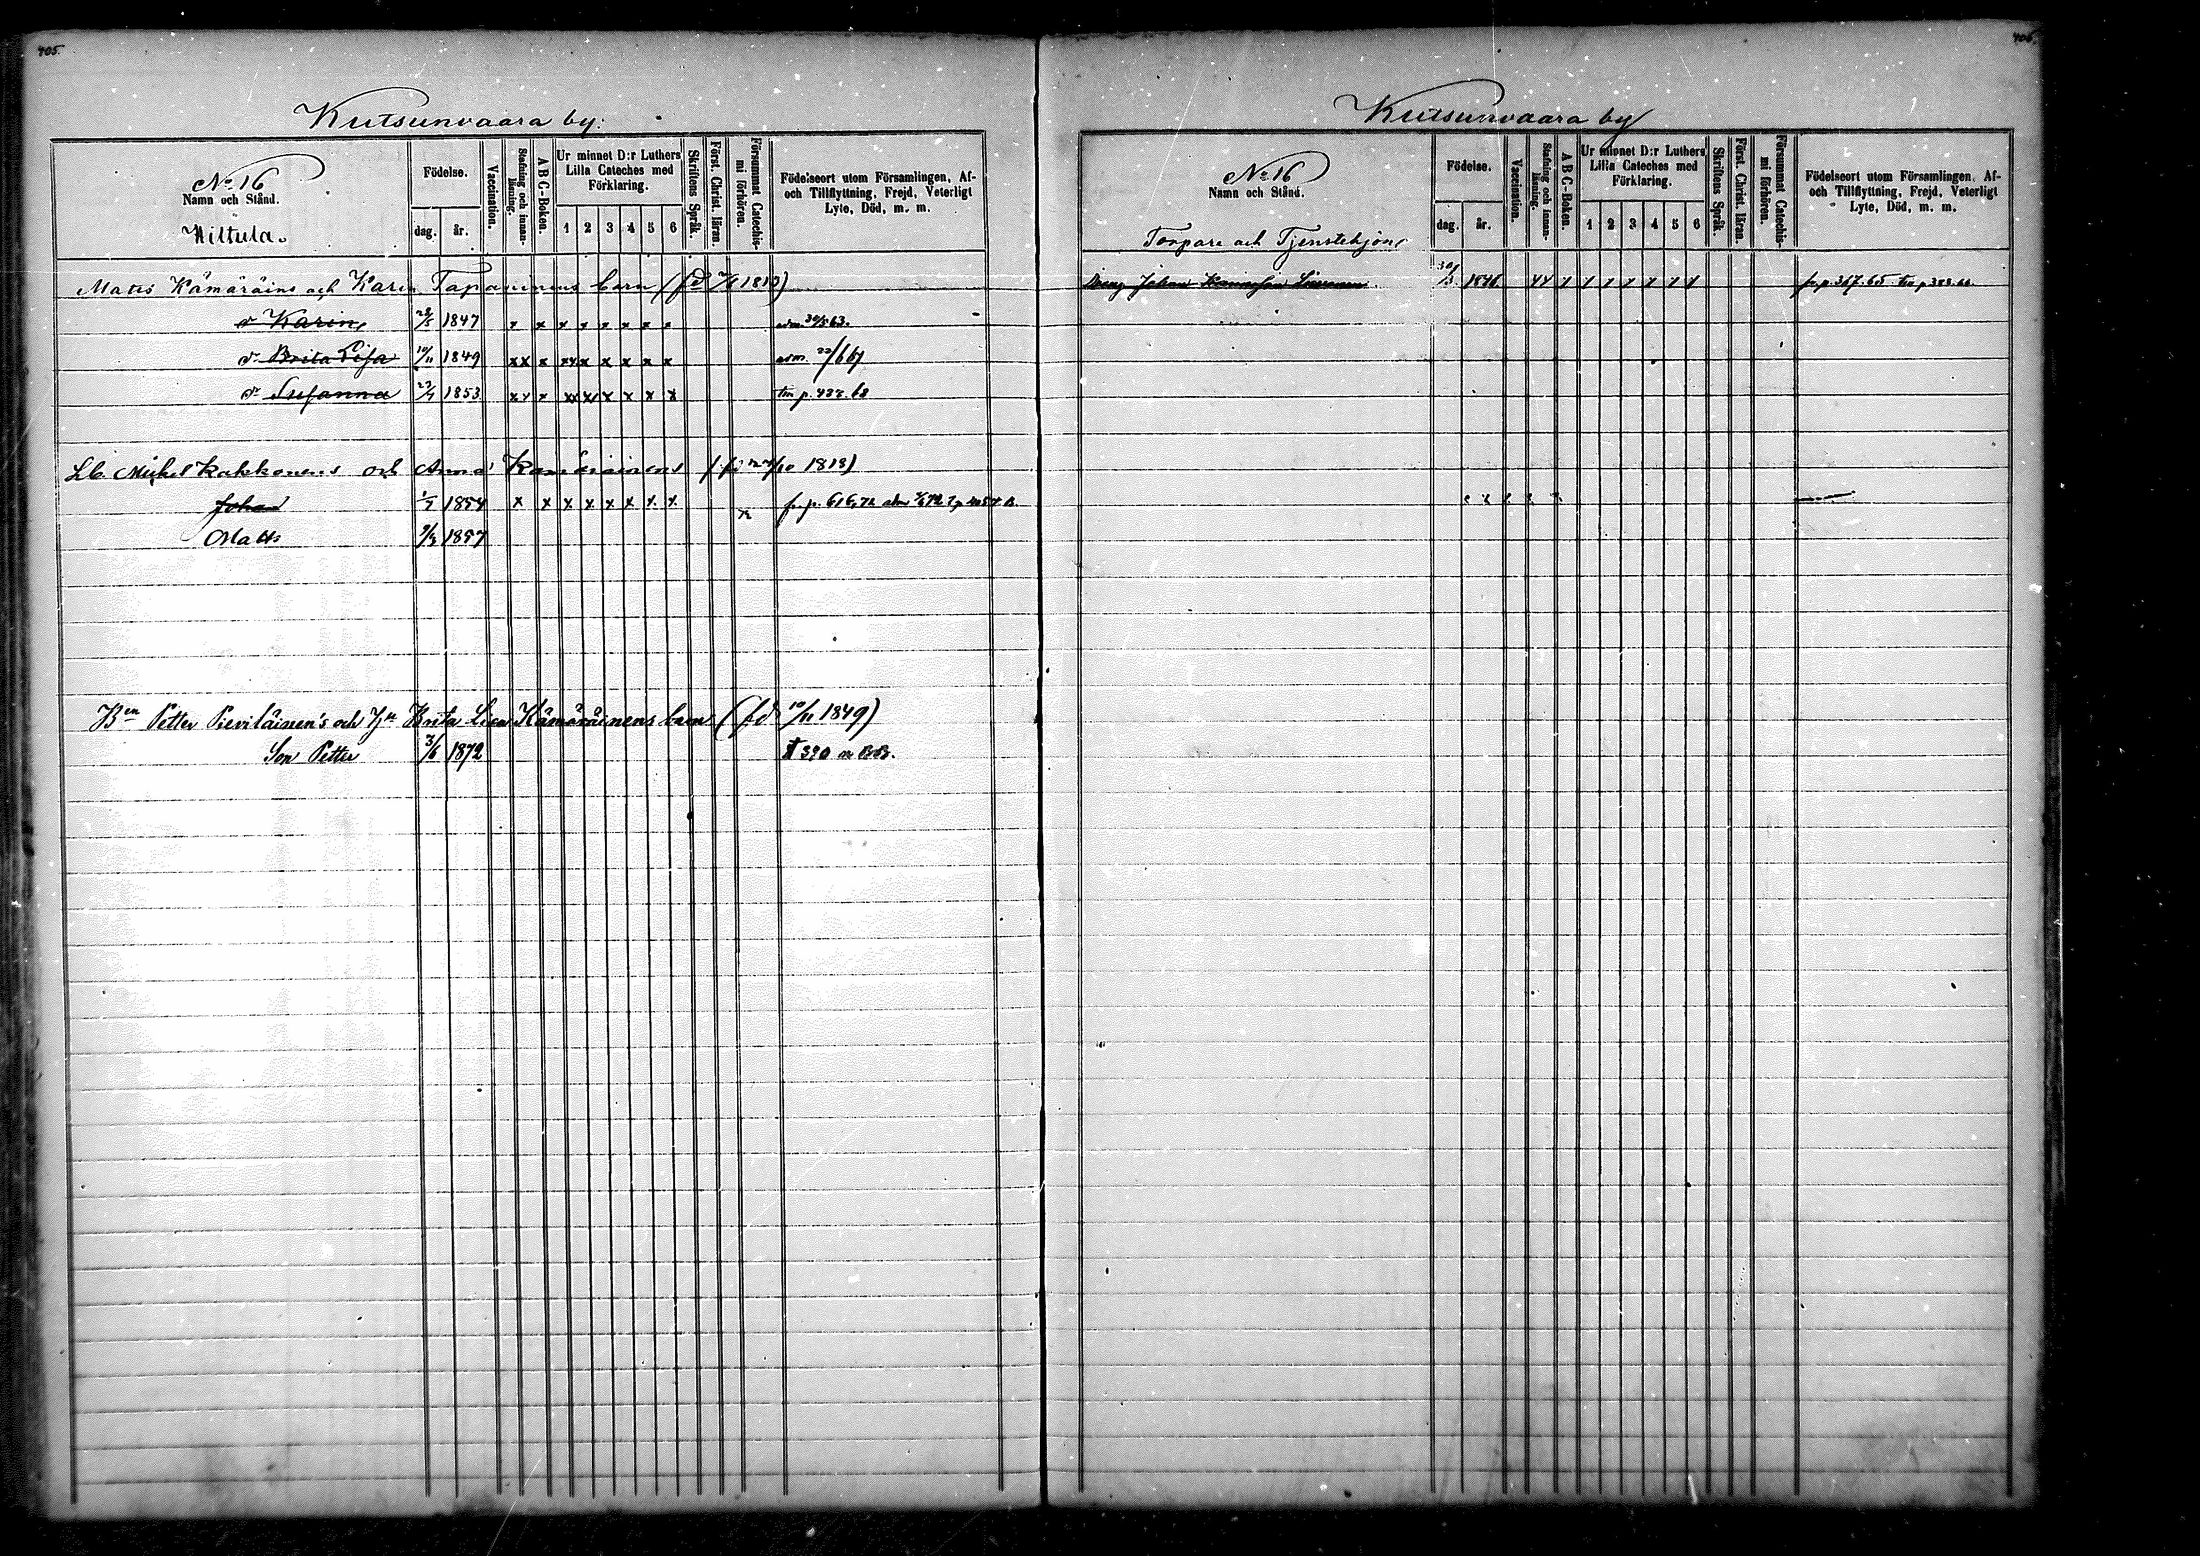 405.
Kutsunvaara by.
No 16
Namn och Stånd.
Wiltula.
Födelse.
dag. år.
Vaccination.
Stafning och innan-läsning.
A B C-Boken.
Ur minnet D:r Luthers Lilla Cateches med Förklaring.
1 2 3 4 5 6
Skriftens Språk.
Först. Christ. läran.
Försummat Catechis-mi förhören.
Födelseort utom Församlingen, Af- och Tillflyttning, Frejd, Veterligt Lyte, Död, m. m.
Matts Kämäräins och Karin Tapaninens barn (fd 1813)
dr Karin 28/5 1847 x x x x x x x x adm. 63.
dr Brita Lisa 10/11 1849 xx x xx x x x x x adm.
dr Susanna 23/4 1853 x x x xx xx x x x x tm p. 68
Lb. Michel Kakkonens och Anna Kämäräinens 1818)
Johan 1854 x x x x x x x x x fr. p. 616,
Matts 1857
Ben Petter Pieviläinen's och H Brita Lisa Kämäräinens barn (fd 10/11 1849)
Son Petter 3/6 1872 390 BB.
406.
Kutsunvaara by
No 16
Namn och Stånd.
Torpare och Tjenstehjon
Födelse.
dag. år.
Vaccination.
Stafning och innan-läsning.
A B C-Boken.
Ur minnet D:r Luthers Lilla Cateches med Förklaring.
1 2 3 4 5 6
Skriftens Språk.
Först. Christ. läran.
Försummat Catechis-mi förhören.
Födelseort utom Församlingen, Af- och Tillflyttning, Frejd, Veterligt Lyte, Död, m. m.
Dreng Johan 30/3 1846 fr. p. 367. 65